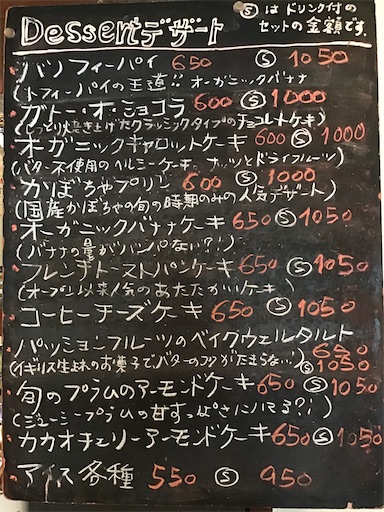 Dessertデザート
Ⓢ は ドリンク付の
セットの金額です。
バノフィーパイ 650 Ⓢ 1050
(トフィーパイの王道!! オーガニックバナナ
ガトー・オ・ショコラ 600 Ⓢ 1000
(しっとり焼き上げたクラシックタイプのチョコレートケーキ)
オーガニックキャロットケーキ 600 Ⓢ 1000
(バター不使用のヘルシーケーキ。ナッツとドライフルーツ)
かぼちゃプリン 600 Ⓢ 1000
(国産かぼちゃの旬の時期のみの人気デザート)
オーガニックバナナケーキ 650 Ⓢ 1050
(バナナの量がハンパない?!)
フレンチトーストパンケーキ 650 Ⓢ 1050
(オープン以来人気のあたたかいケーキ)
コーヒーチーズケーキ 650 Ⓢ 1050
パッションフルーツのベイクウェルタルト 650
(イギリス生まれのお菓子でバターのコクがたまらない) Ⓢ 1050
旬のプラムのアーモンドケーキ 650 Ⓢ 1050
(ジューシープラムの甘ずっぱさにハマる?!)
カカオチェリーアーモンドケーキ 650 Ⓢ 1050
アイス各種 550 Ⓢ 950